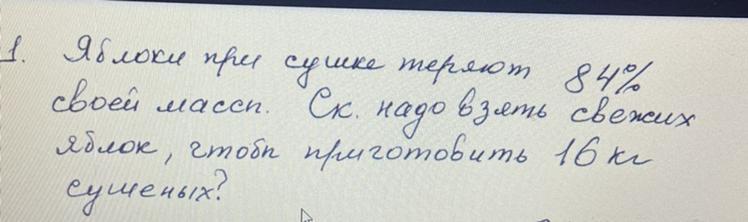 1. Яблоки при сушке теряют 84%
своей массы. Ск. надо взять свежих
яблок, чтобы приготовить 16 кг
сушеных?